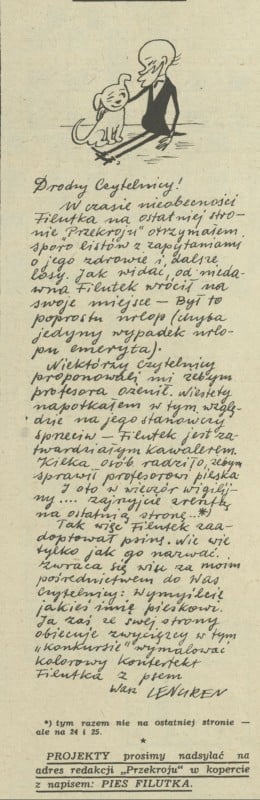 Drodzy Czytelnicy!
W czasie nieobecności
Filutka na ostatniej stro-
nie "Przekroju" otrzymałem
sporo listów z zapytaniami
o jego zdrowie i dalsze
losy. Jak widać, od nieda-
wna Filutek wrócił na
swoje miejsce — Był to
poprostu urlop (chyba
jedyny wypadek urlo-
pu emeryta).
Niektórzy czytelnicy
proponowali mi żebym
profesora ożenił. Niestety
napotkałem w tym wzglę-
dzie na jego stanowczy
sprzeciw — Filutek jest za-
twardziałym kawalerem.
Kilka osób radziło, żebym
sprawił profesorowi pieska
I oto w wieczór wigilij-
ny... zajrzyjcie zresztą
na ostatnią stronę...*)
Tak więc Filutek zaa-
doptował psinę. Nie wie
tylko jak go nazwać.
Zwraca się więc za moim
pośrednictwem do Was
Czytelnicy: Wymyślcie
jakieś imię pieskowi.
Ja zaś ze swej strony
obiecuję zwycięzcy w tym
„konkursie" wymalować
kolorowy konterfekt
Filutka z psem
Wasz LENGREN
*) tym razem nie na ostatniej stronie —
ale na 24 i 25.
*
PROJEKTY prosimy nadsyłać na
adres redakcji „Przekroju" w kopercie
z napisem: PIES FILUTKA.